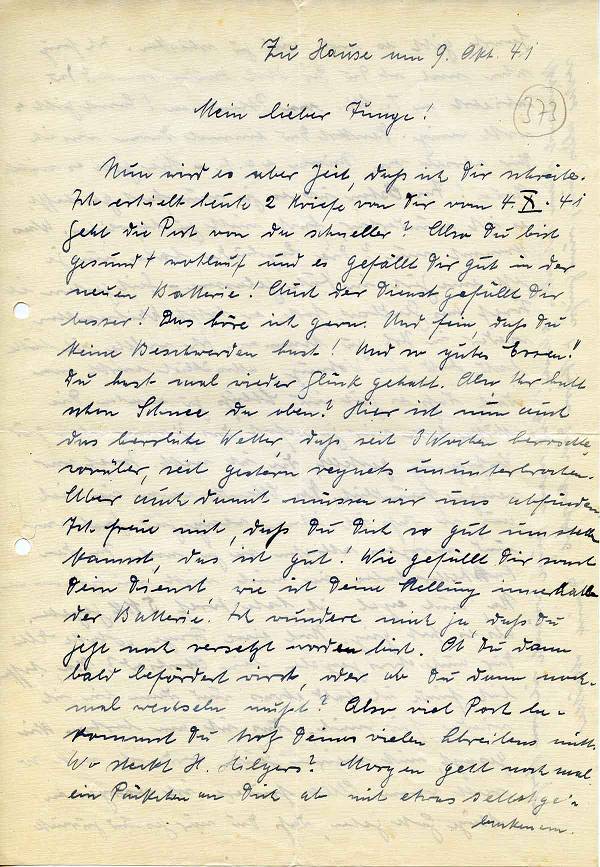 Zu Hause am 9. Okt. 41
Mein lieber Junge!
373
Nun wird es aber Zeit, daß ich Dir schreibe.
Ich erhielt heute 2 Briefe von Dir vom 4. X. 41
Geht die Post von da schneller? Also Du bist
gesund + wohlauf und es gefällt Dir gut in der
neuen Batterie! Auch der Dienst gefällt Dir
besser! Das höre ich gern. Und fein, daß Du
keine Beschwerden hast! Und so gutes Essen!
Du hast mal wieder Glück gehabt. Also Ihr hatt
schon Schnee da oben? Hier ist nun auch
das herrliche Wetter, daß seit 3 Wochen herrschte,
vorüber, seit gestern regnets ununterbrochen.
Aber auch damit müssen wir uns abfinden.
Ich freue mich, daß Du Dich so gut umstellen
kannst, das ist gut! Wie gefällt Dir sonst
Dein Dienst, wie ist Deine Stellung innerhalb
der Batterie. Ich wundere mich ja, daß Du
jetzt noch versetzt worden bist. Ob Du dann
bald befördert wirst, oder ob Du dann noch-
mal wechseln mußt? Also viel Post be-
kommst Du trotz Deines vielen Schreibens nicht.
Wo steckt H. Hilgers? Morgen geht noch mal
ein Päckchen an Dich ab mit etwas selbstge-
backenem.